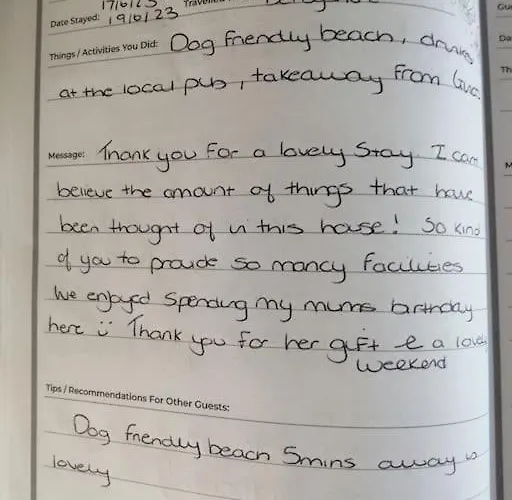 17/6/23
Date Stayed: 19/6/23
Things / Activities You Did: Dog friendly beach, drinks
at the local pub, takeaway from
Message: Thank you for a lovely stay I can
believe the amount of things that have
been thought of in this house! So kind
of you to provide so many facilities
We enjoyed spending my mums birthday
here ü Thank you for her gift & a lovely
weekend
Tips / Recommendations For Other Guests:
Dog friendly beach 5mins away is
lovely